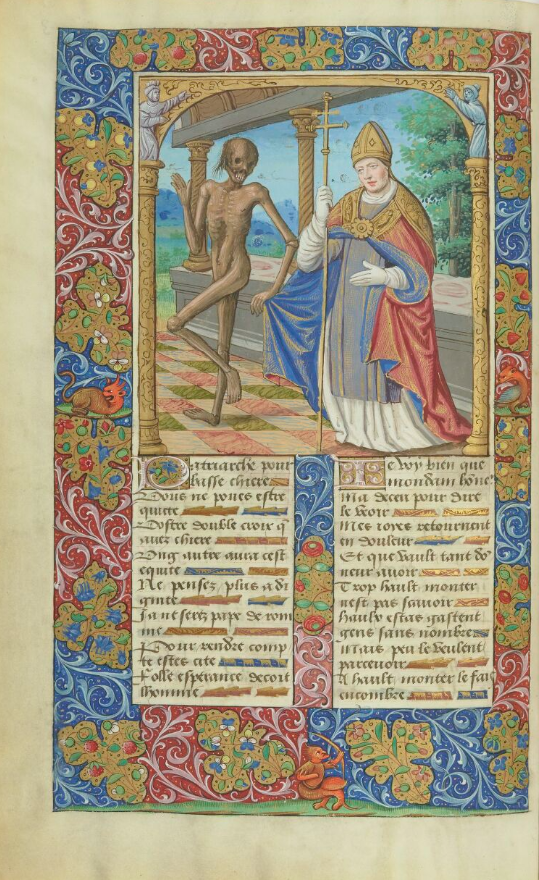 Patriarche pour
basse chiere
Vous ne poues estre
quitte
Vostre double croix q
auez chiere
Ung autre aura cest
equite
Ne pensez plus a di
gnite
Ja ne serez pape de rom
me
Pour rendre comp
te estes cite
Folle esperance decoit
lhomme
Je voy bien que
mondain hōne
Ma deceu pour dire
le veoir
Mes ioyes retournent
en douleur
Et que vault tant dō
neur auoir
Trop hault monter
nest pas scauoir
Haulx estas gastent
gens sans nombre
Mais peu le veulent
parceuoir
A hault monter le fais
encombre